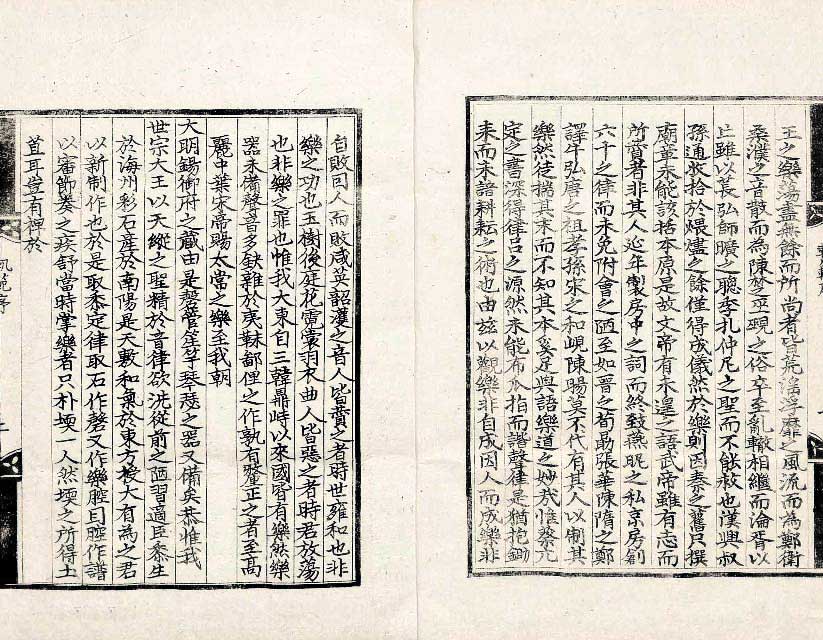 王之樂蕩盡無餘而所尚者皆荒淫浮靡之風流而為鄭衛
桑濮之音散而為陳梦巫覡之俗卒至亂轍相繼而淪胥以
亡雖以萇弘師曠之聰季札仲尼之聖而不能救也漢興叔
孫通收拾於煨燼之餘僅得成儀然於樂則因秦之舊只撰
廟章未能該括本原是故文帝有未遑之語武帝雖有志而
所賞者非其人延年製房中之詞而終致燕昵之私京房創
六十之律而未免附會之陋至如晋之荀勗張華陳隋之鄭
譯牛弘唐之祖孝孫宋之和峴陳暘莫不代有其人以制其
樂然徒揣其末而不知其本奚足與語樂道之妙哉惟蔡元
定之書深得律呂之源然未能布爪指而諧聲律是猶抱鋤
耒而未諳耕耘之術也由玆以觀樂非自成因人而成樂非
自敗因人而敗咸英韶濩之音人皆賛之者時世雍和也非
樂之功也玉樹後庭花霓裳羽衣曲人皆惡之者時君放蕩
也非樂之罪也惟我大東自三韓鼎峙以來國皆有樂然樂
器未備聲音多缺雜於夷靺鄙俚之作孰有釐正之者至高
麗中葉宋帝賜太常之樂至我朝
大明錫御府之藏由是磬管笙竽琴瑟之器又備矣恭惟我
世宗大王以天縱之聖精於音律欲洗從前之陋習適臣黍生
於海州彩石産於南陽是天敷和氣於東方授大有為之君
以新制作也於是取黍定律取石作磬又作樂腔囙腔作譜
以審節奏之疾舒當時掌樂者只朴堧一人然堧之所得土
苴耳豈有裨於